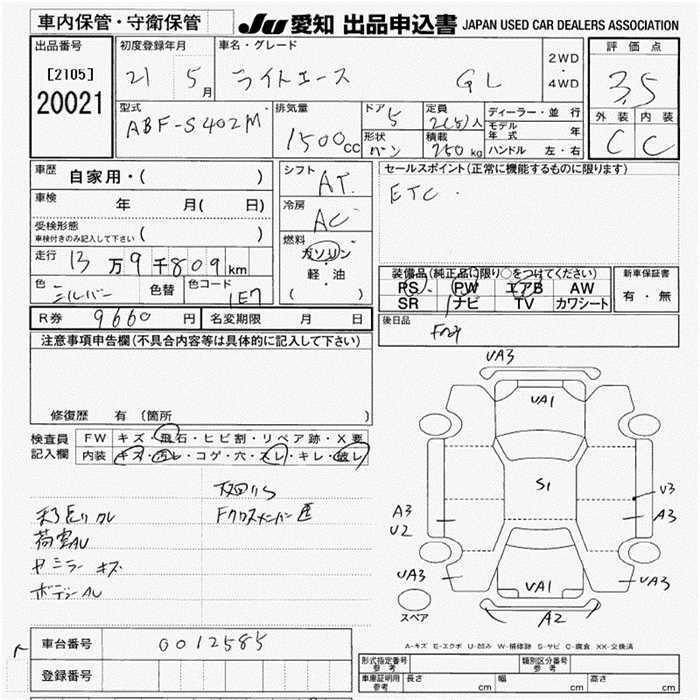 車内保管・守衛保管
JU 愛知 出品申込書 JAPAN USED CAR DEALERS ASSOCIATION
出品番号
[2105]
20021
初度登録年月
21 5月
車名・グレード
ライトエース GL
2WD
・
4WD
評価点
3.5
外装 内装
C C
型式
ABF-S402M
排気量
1500cc
ドア
5
形状
バン
定員
2(5)人
積載
750kg
ディーラー・並行
モデル年式 年
ハンドル 左・右
車歴
自家用・( )
車検
年 月( 日)
受検形態
車検付きのみ記入して下さい ( )
走行
13万9千809km
色
シルバー
色替
色コード
1E7
シフト
AT
冷房
AC
燃料
ガソリン
軽・油
( )
セールスポイント(正常に機能するものに限ります)
ETC
装備品(純正品に限り○をつけてください)
PS PW エアB AW
SR ナビ TV カワシート
新車保証書
有・無
R券 9660円
名変期限 月 日
後日品
注意事項申告欄(不具合内容等は具体的に記入して下さい)
修復歴 有 〔箇所 〕
検査員
記入欄
FW キズ・飛石・ヒビ割・リペア跡・X要
内装 キズ・汚レ・コゲ・穴・スレ・キレ・破レ
荷室AU
Fクロスメンバー
ドアミラー キズ
ボデーAU
UA3
UA1
S1
A3
U2
U3
A3
UA3
UA1
UA3
A2
スペア
A-キズ E-エクボ U-凹み W-補修跡 S-サビ C-腐食 XX-交換済
車台番号
0012585
登録番号
形式指定番号
参考
類別区分番号
参考
車庫証明用
参考
長さ cm 幅 cm 高さ cm